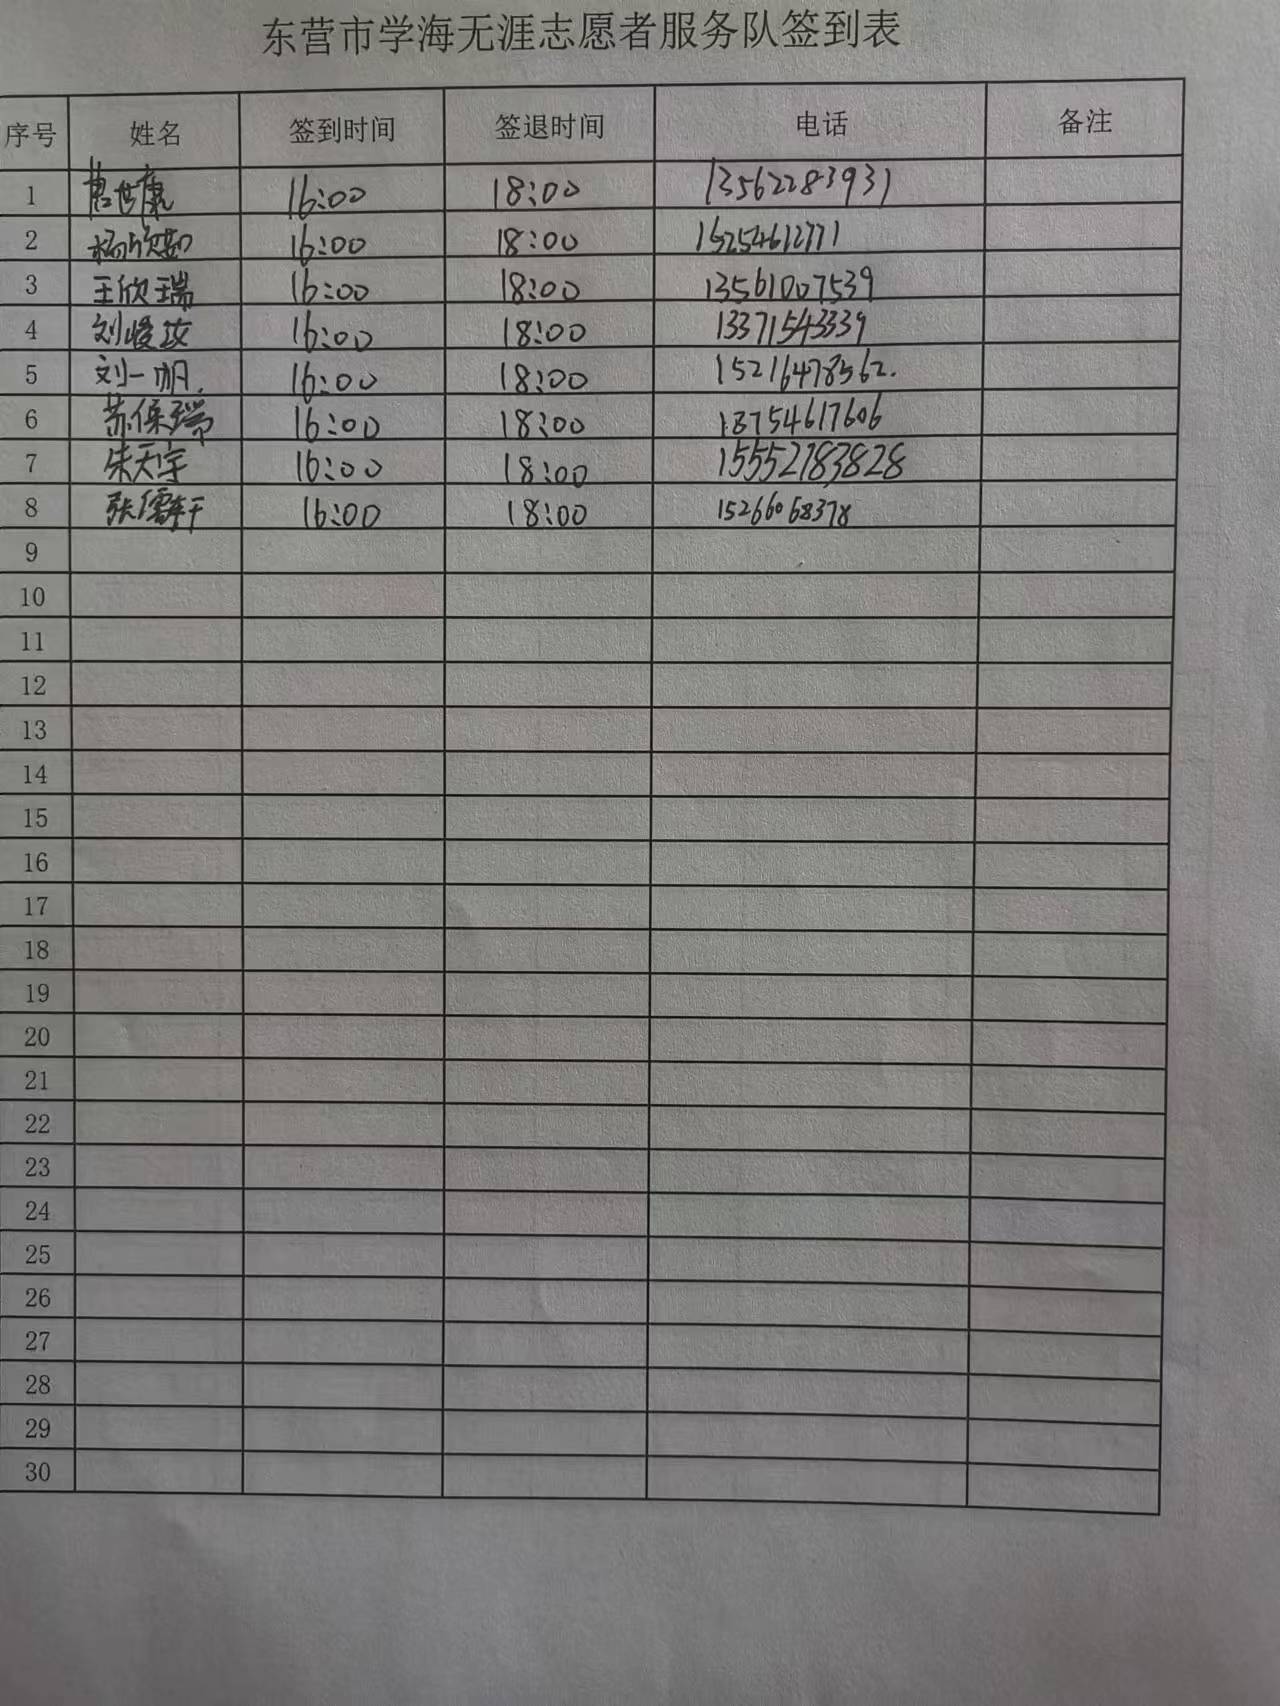 东营市学海无涯志愿者服务队签到表
序号 姓名 签到时间 签退时间 电话 备注
1 曹世康 16:00 18:00 13562283931
2 杨欣如 16:00 18:00 15254612771
3 王欣瑞 16:00 18:00 13561007539
4 刘峻汝 16:00 18:00 13371543339
5 刘一帆. 16:00 18:00 15216478562.
6 苏保瑞 16:00 18:00 13754617606
7 朱天宇 16:00 18:00 15552783828
8 张儒轩 16:00 18:00 15266068378
9
10
11
12
13
14
15
16
17
18
19
20
21
22
23
24
25
26
27
28
29
30